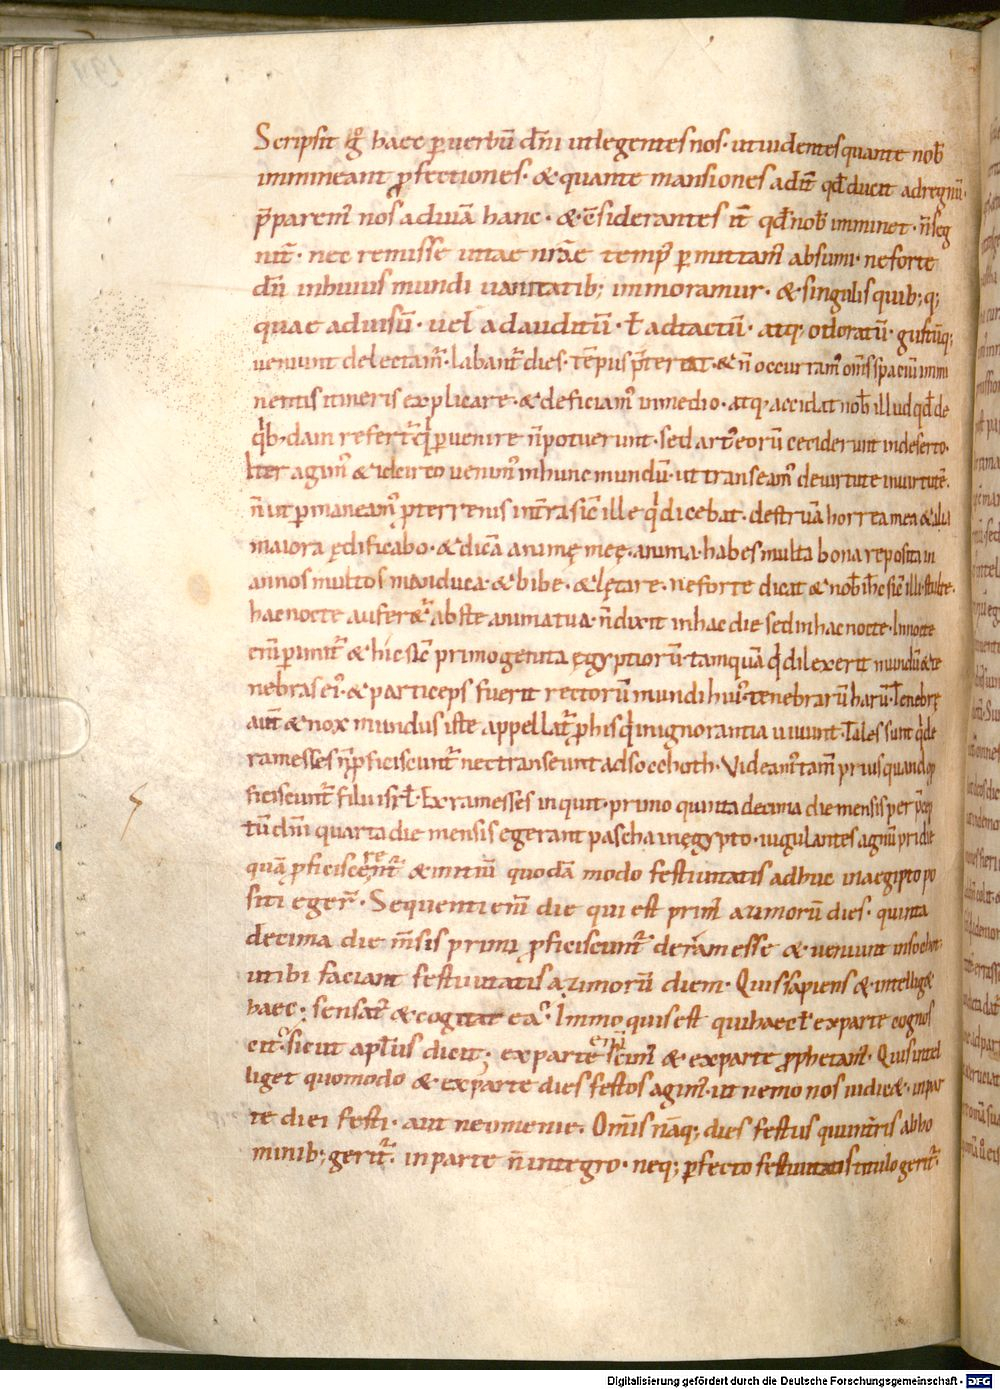 Scripsit g̊ haec ꝑ uerbū dn̄i ut legentes nos · ut uidentes quante nob̄
immineant ꝓfectiones · & quante mansiones adit̄ qđ ducit ad regnū ·
p̄parem̉ nos ad uiā hanc · & c̄siderantes it̄ qđ nob̄ imminet · n̄ seg
nit̄ · nec remisse uitae nr̄ae temp̉ ꝑmittam̉ absumi · ne forte
dū in huius mundi uanitatib; immoramur · & singulis quib;q;
quae ad uisū · uel ad auditū · ł ad tactū · atq; odoratū · gustūq;
ueniunt delectam̉ · labant̉ dies · tēpus p̄tereat · & n̄ occurram̉ om̄s spaciū immi
nentis itineris explicare · & deficiam̉ in medio · atq; accidat nob̄ illud qđ de
qͥb;dam refert̉ qͥ ꝑuenire n̄ potuerunt · sed art̉ eorū ceciderunt in deserto ·
Iter agim̉ & idcirco uenim̉ in hunc mundū · ut transeam̉ de uirtute in uirtutē ·
n̄ ut ꝑmaneam̉ p̱ terrenis int̄ra sic̄ ille qͥ dicebat · destruā horrea mea & alia
maiora ędificabo · & dicā animę meę · anima · habes multa bona reposita in
annos multos manduca · & bibe · & lętare · ne forte dicat & nob̄ ihc̄ sic̄ illi · stulte ·
hac nocte aufer&̉ abs te anima tua · n̄ dixit in hac die sed in hac nocte · In nocte
eni̅ ꝑimit̉ & hic sic̄ primogenita ęgyptiorū · tamquā qͥ dilexerit mundū & te
nebras eỉ · & particeps fuerit rectorū mundi huỉ · tenebrarū harū · Tenebrę
aut̄ & nox mundus iste appellat̉ ꝓ his qͥ in ignorantia uiuunt · Tales sunt qͥ de
ramesses n̄ ꝓficiscunt̉ nec transeunt ad socchoth · Videam̉ tam̄ prius quando ꝓ
ficiscunt̉ filii isrł · Ex ramesses inquit · primo quinta decima die mensis per p̄cep
tū dn̄i quarta die mensis egerant pascha in ęgypto · iugulantes agnū pridie
quā ꝓficiscerent̉ & initiū quodā modo festiuitatis adhuc in aegipto po
siti eger̄ · Sequenti eni̅ die qui est prim̉ azimorū dies · quinta
decima die m̄sis primi ꝓficiscunt̉ de ramesse & ueniunt in sochot ·
ut ibi faciant festiuitatis azimorū diem · Quis sapiens & intellig&
haec ; sensat̉ & cogitat ea ; Immo quis est qui haec ł ex parte cognos
cit ; sicut apłus dicit ; ex parte eni̅ scim̉ & ex parte ꝓphetam̉ · Quis intel
liget quomodo & ex parte dies festos agim̉ · ut nemo nos iudic& · in par
te diei festi · aut neomenie · Om̄is nāq; dies festus qui in t̄ris ab ho
minib; gerit̉ · in parte n̄ integro · neq; ꝑfecto festiuitatis titulo gerit̉ ·
Digitalisierung gefördert durch die Deutsche Forschungsgemeinschaft - DFG